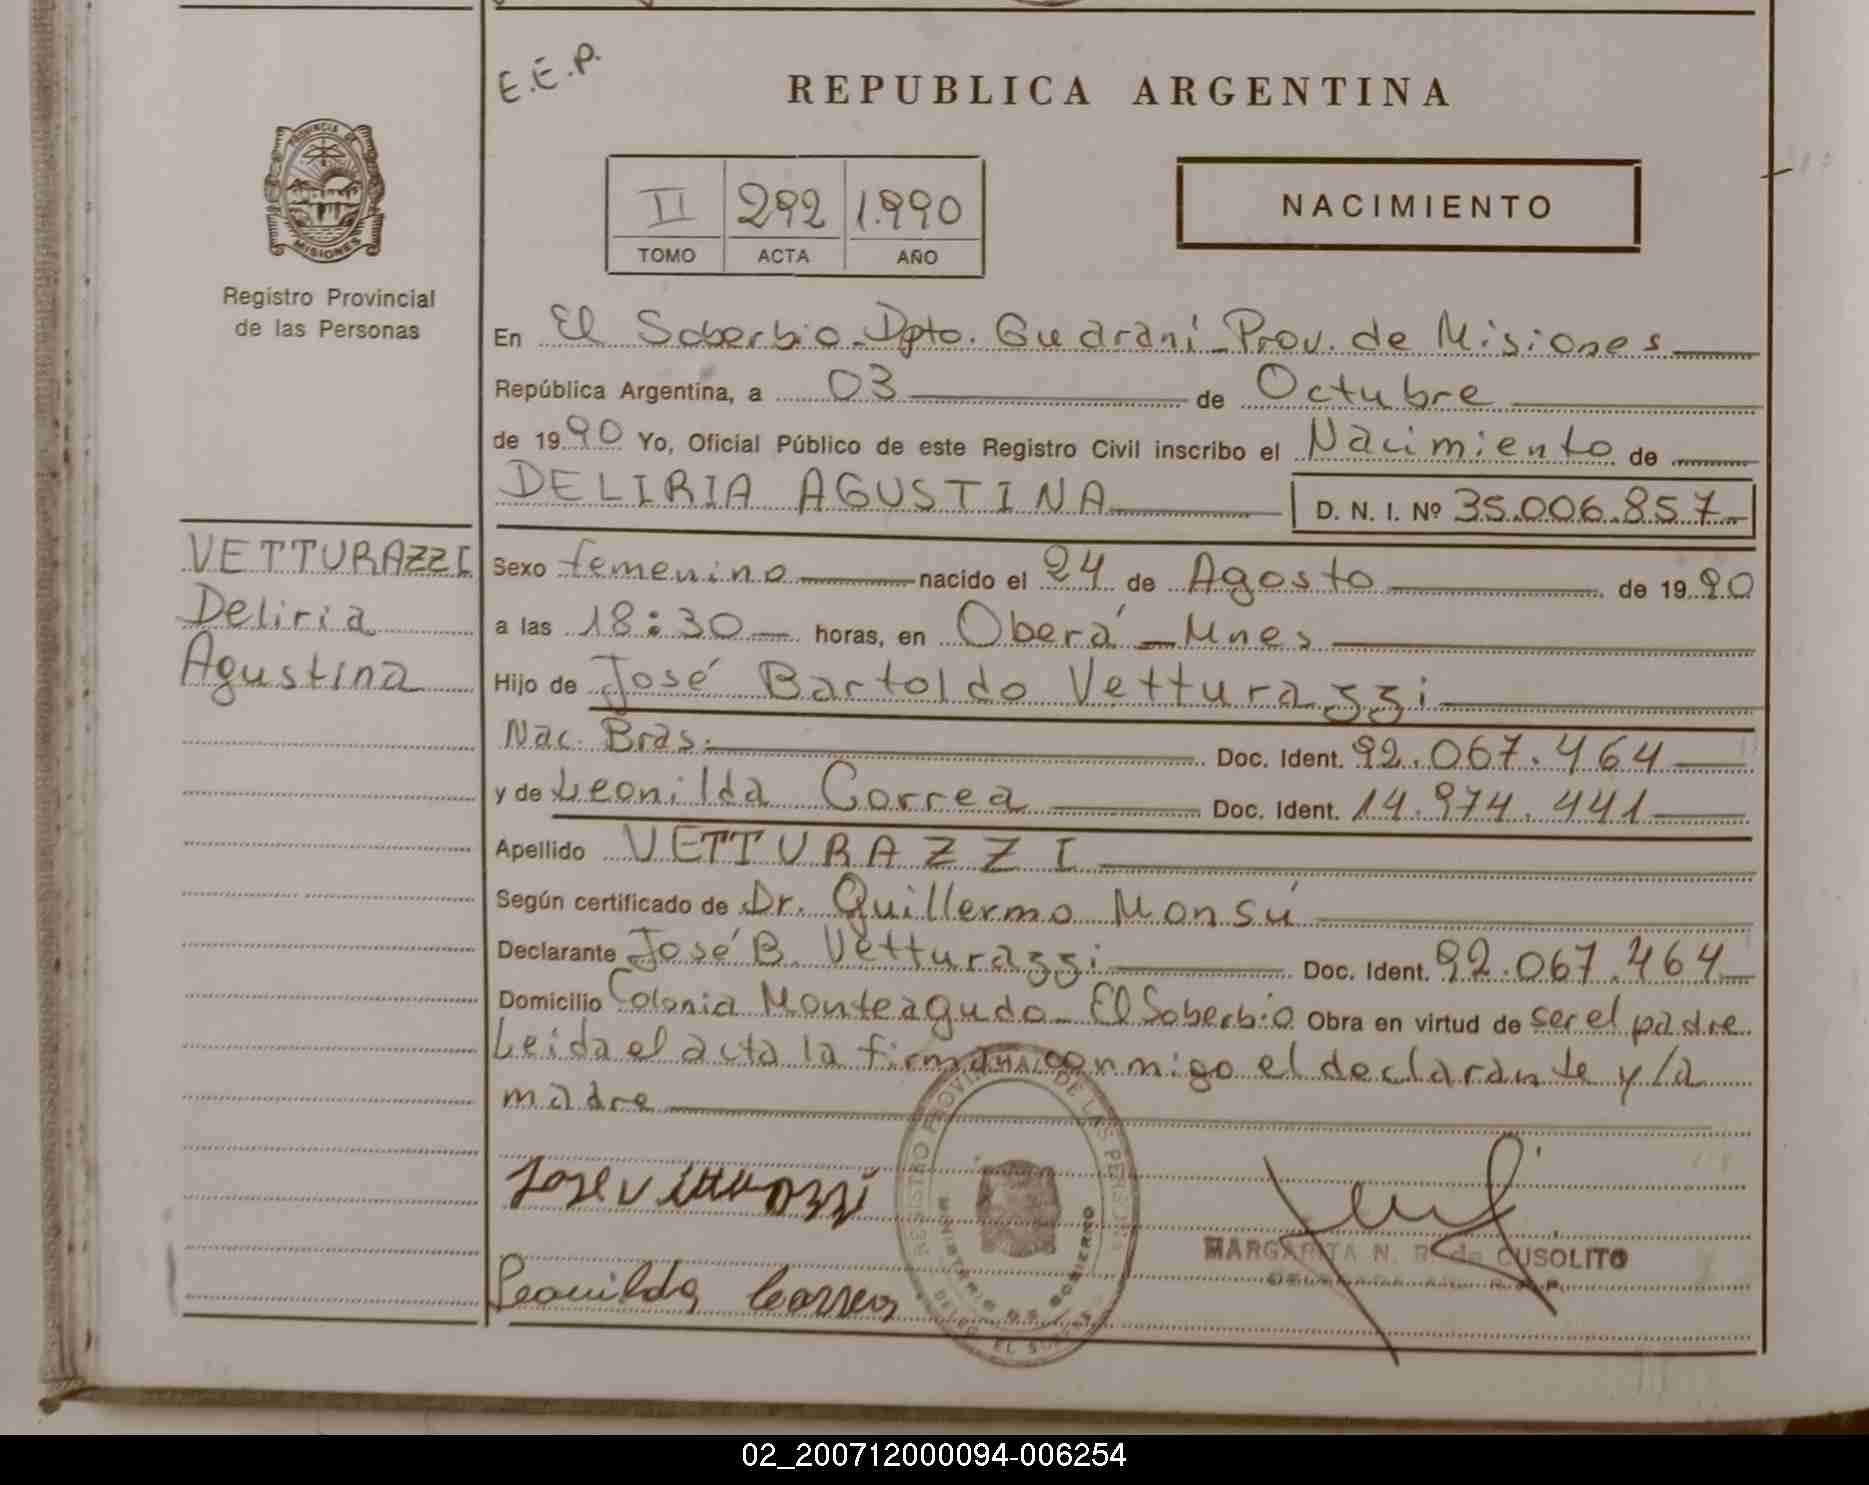 E.E.P.
REPUBLICA ARGENTINA
PROVINCIA DE
MISIONES
II 292 1.990
TOMO ACTA AÑO
NACIMIENTO
Registro Provincial
de las Personas
En El Soberbio-Dpto. Guaraní-Prov. de Misiones
República Argentina, a 03 de Octubre
de 1990 Yo, Oficial Público de este Registro Civil inscribo el Nacimiento de
DELIRIA AGUSTINA D. N. I. Nº 35.006.857
VETTURAZZI
Deliria
Agustina
Sexo femenino nacido el 24 de Agosto de 1990
a las 18:30 horas, en Oberá-Mnes
Hijo de José Bartoldo Vetturazzi
Nac. Bras. Doc. Ident. 92.067.464
y de Leonilda Correa Doc. Ident. 14.974.441
Apellido VETTURAZZI
Según certificado de Dr. Guillermo Monsú
Declarante José B. Vetturazzi Doc. Ident. 92.067.464
Domicilio Colonia Monteagudo-El Soberbio Obra en virtud de ser el padre
Leida el acta la firman conmigo el declarante y la
madre
REGISTRO PROVINCIAL DE LAS PERSONAS
MINISTERIO DE GOBIERNO
Jose Vetturazzi
MARGARITA N. R. de CUSOLITO
Leonilda Correa
02_200712000094-006254